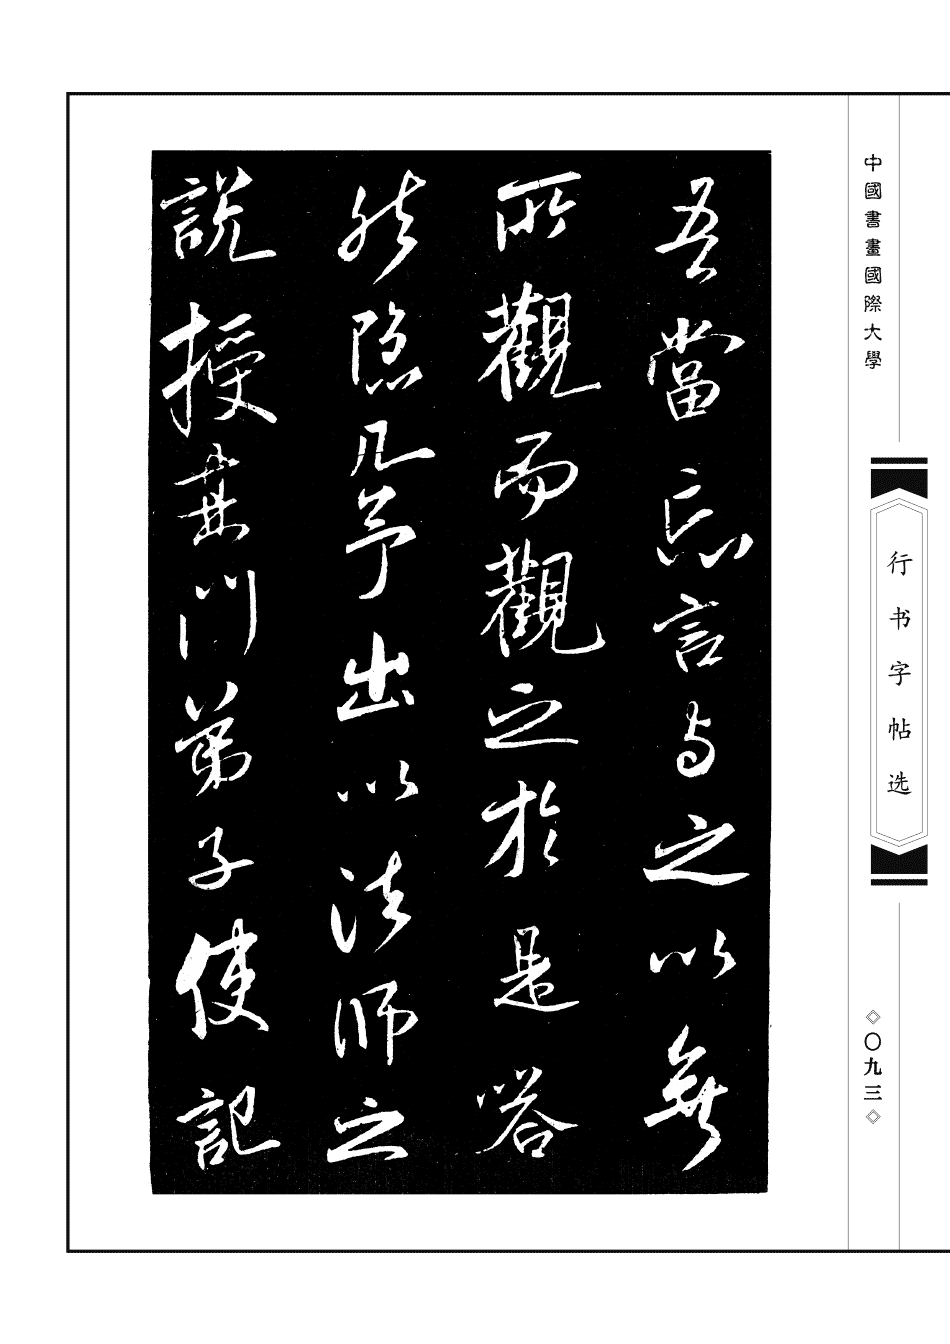 吾當忘言与之以無
所觀而觀之於是嗒
然隱几予出以法師之
說授其門弟子使記
中國書畫國際大學
行书字帖选
◇〇九三◇